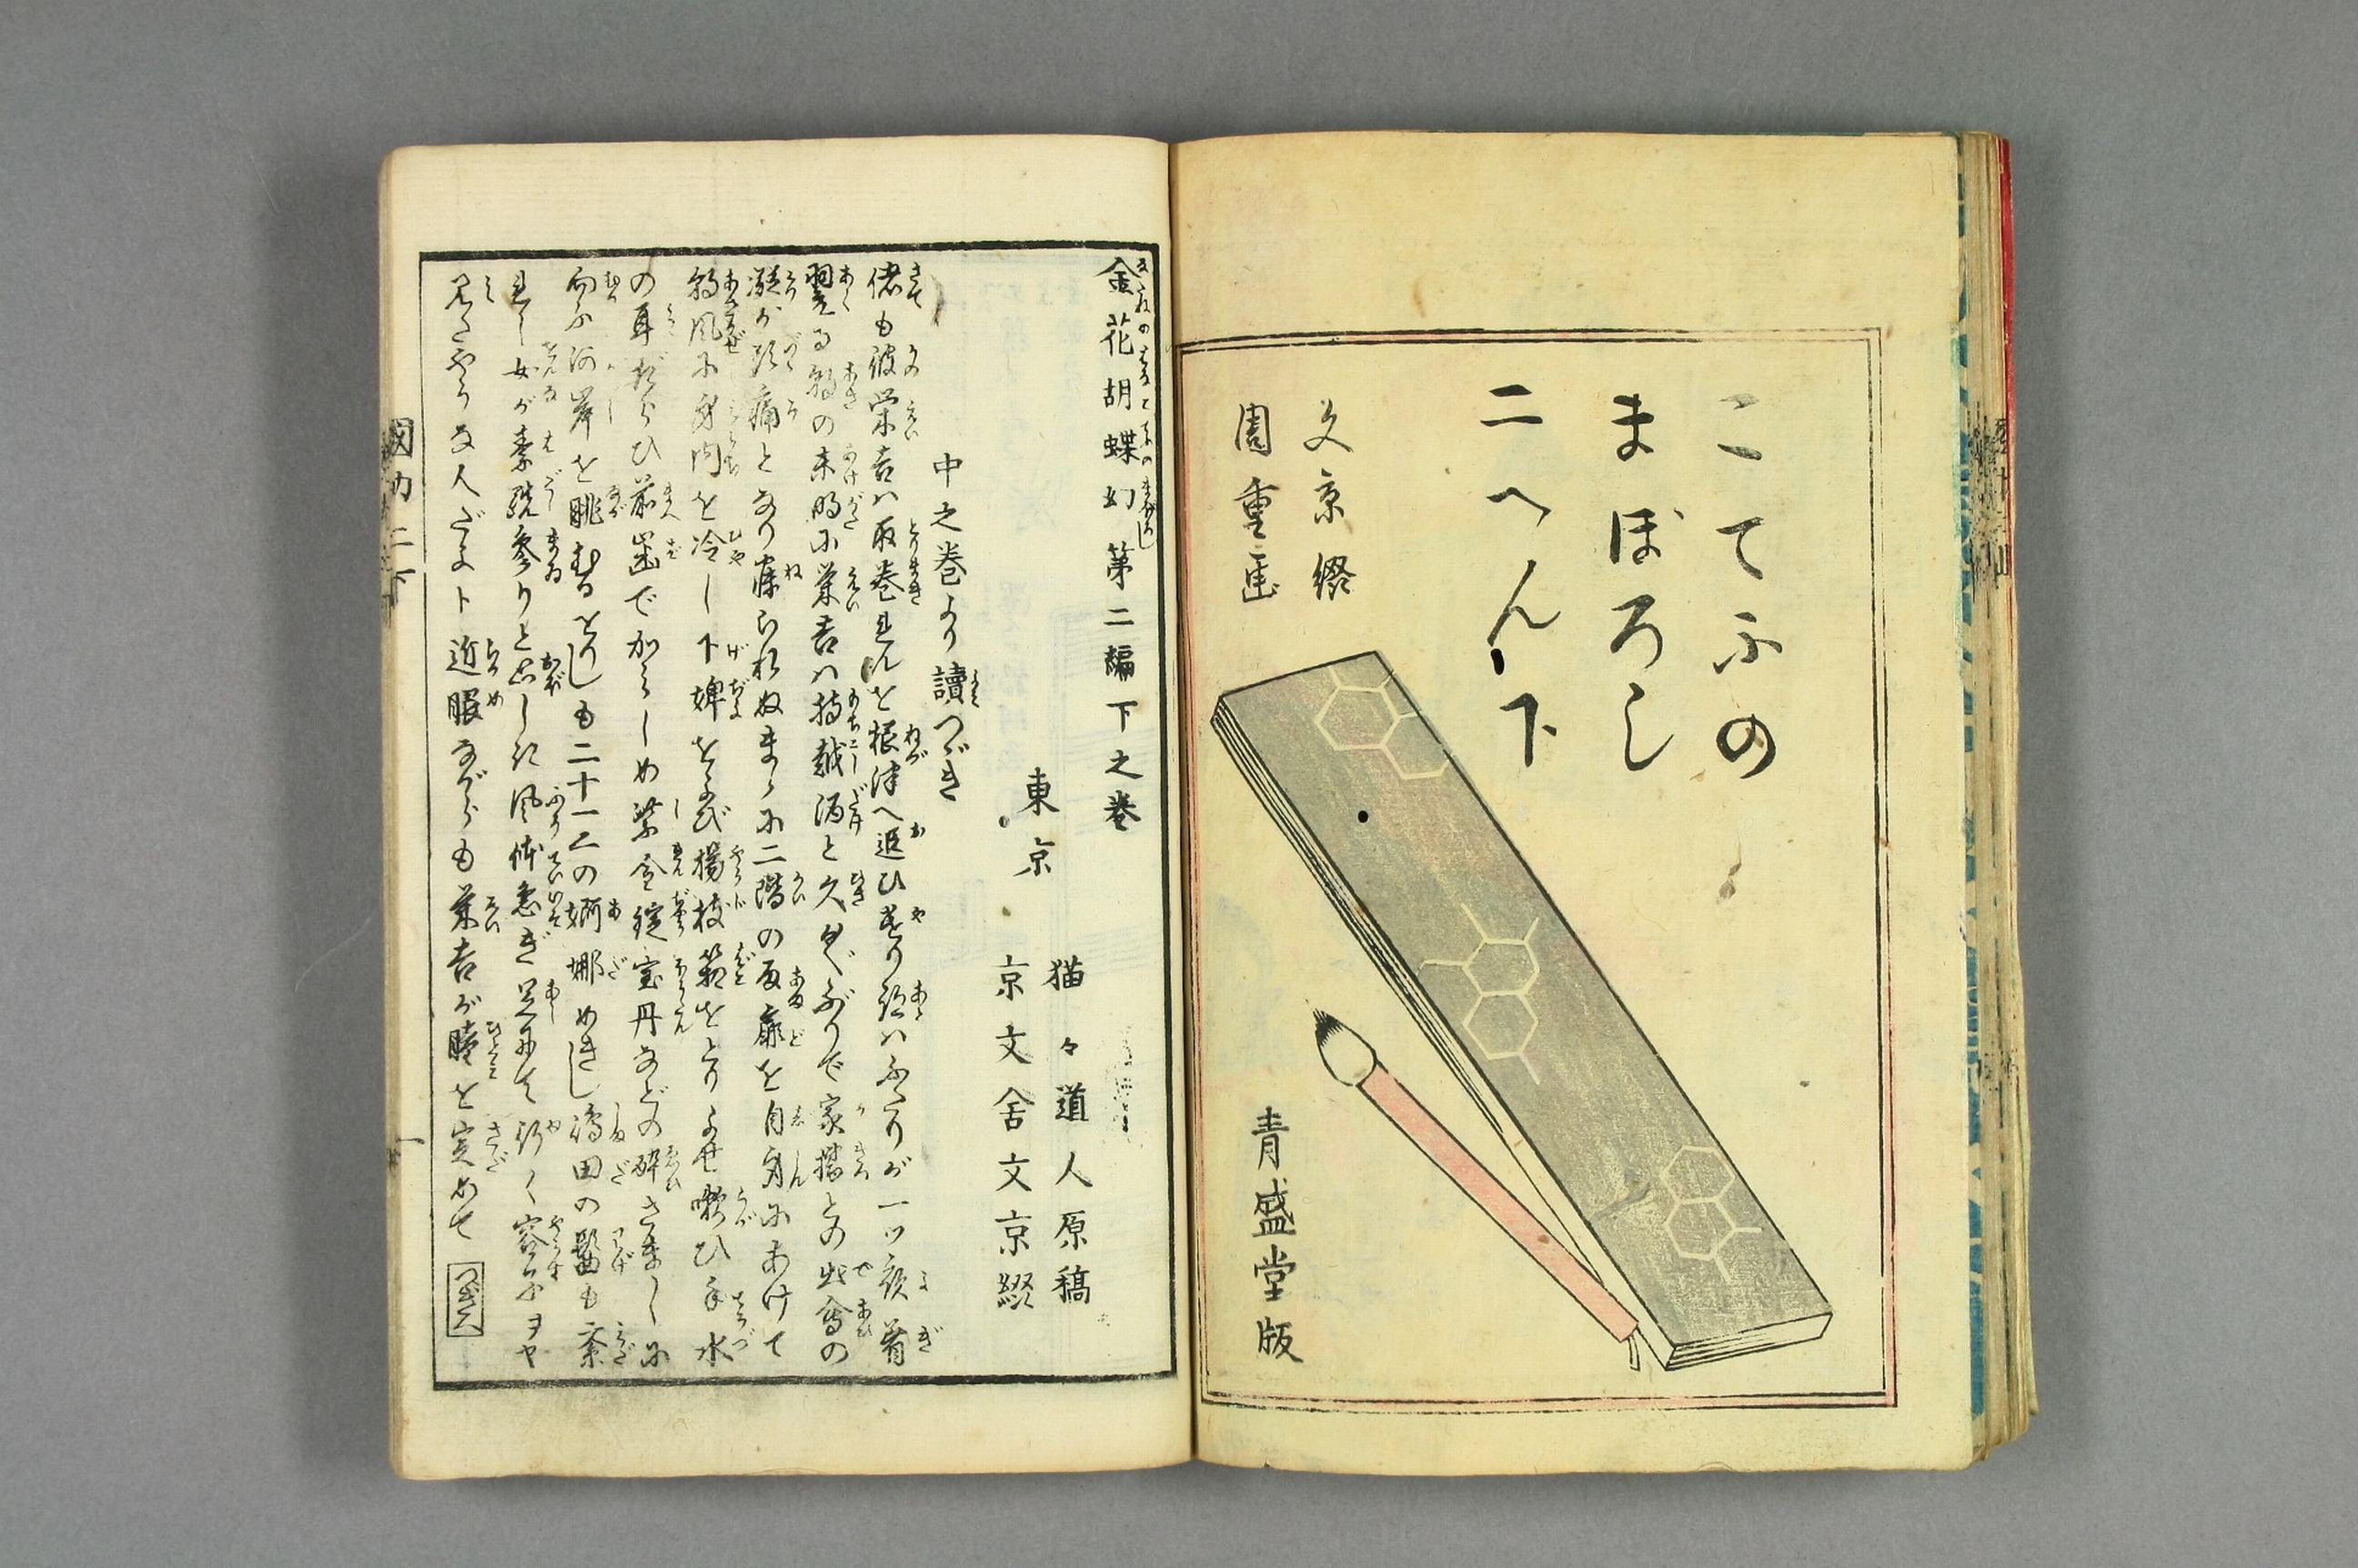 こてふの
まぼろし
二へん下
文京綴
周重画
青盛堂版
金花胡蝶幻第二編下之巻
東京
猫々道人原稿
京文舍文京綴
中之巻より讀つゞき
偖も彼栄吉ハ取巻連を根津へ追ひやり跡ハふたりが一ツ夜着
翌る朝の未明に栄吉ハ持越酒と久しぶりで家橘との出會の
凝が頭痛となり寐られぬまゝに二階の雨扉を自身にあけて
朝風に身内を冷し下婢をよび楊枝箱をとりよせ嗽ひ手水
の耳だらひ前歯で加らしめ紫金錠宝丹などの酔さましに
向ふ河岸を眺むるをりしも二十一二の婀娜めきし嶋田の髷も紊
れし女が素跣参りと思しき風体急ぎ足にて行く容子ヲヤ
見たやうな人だよト近眼ながらも栄吉が瞳を定めて
つぎへ